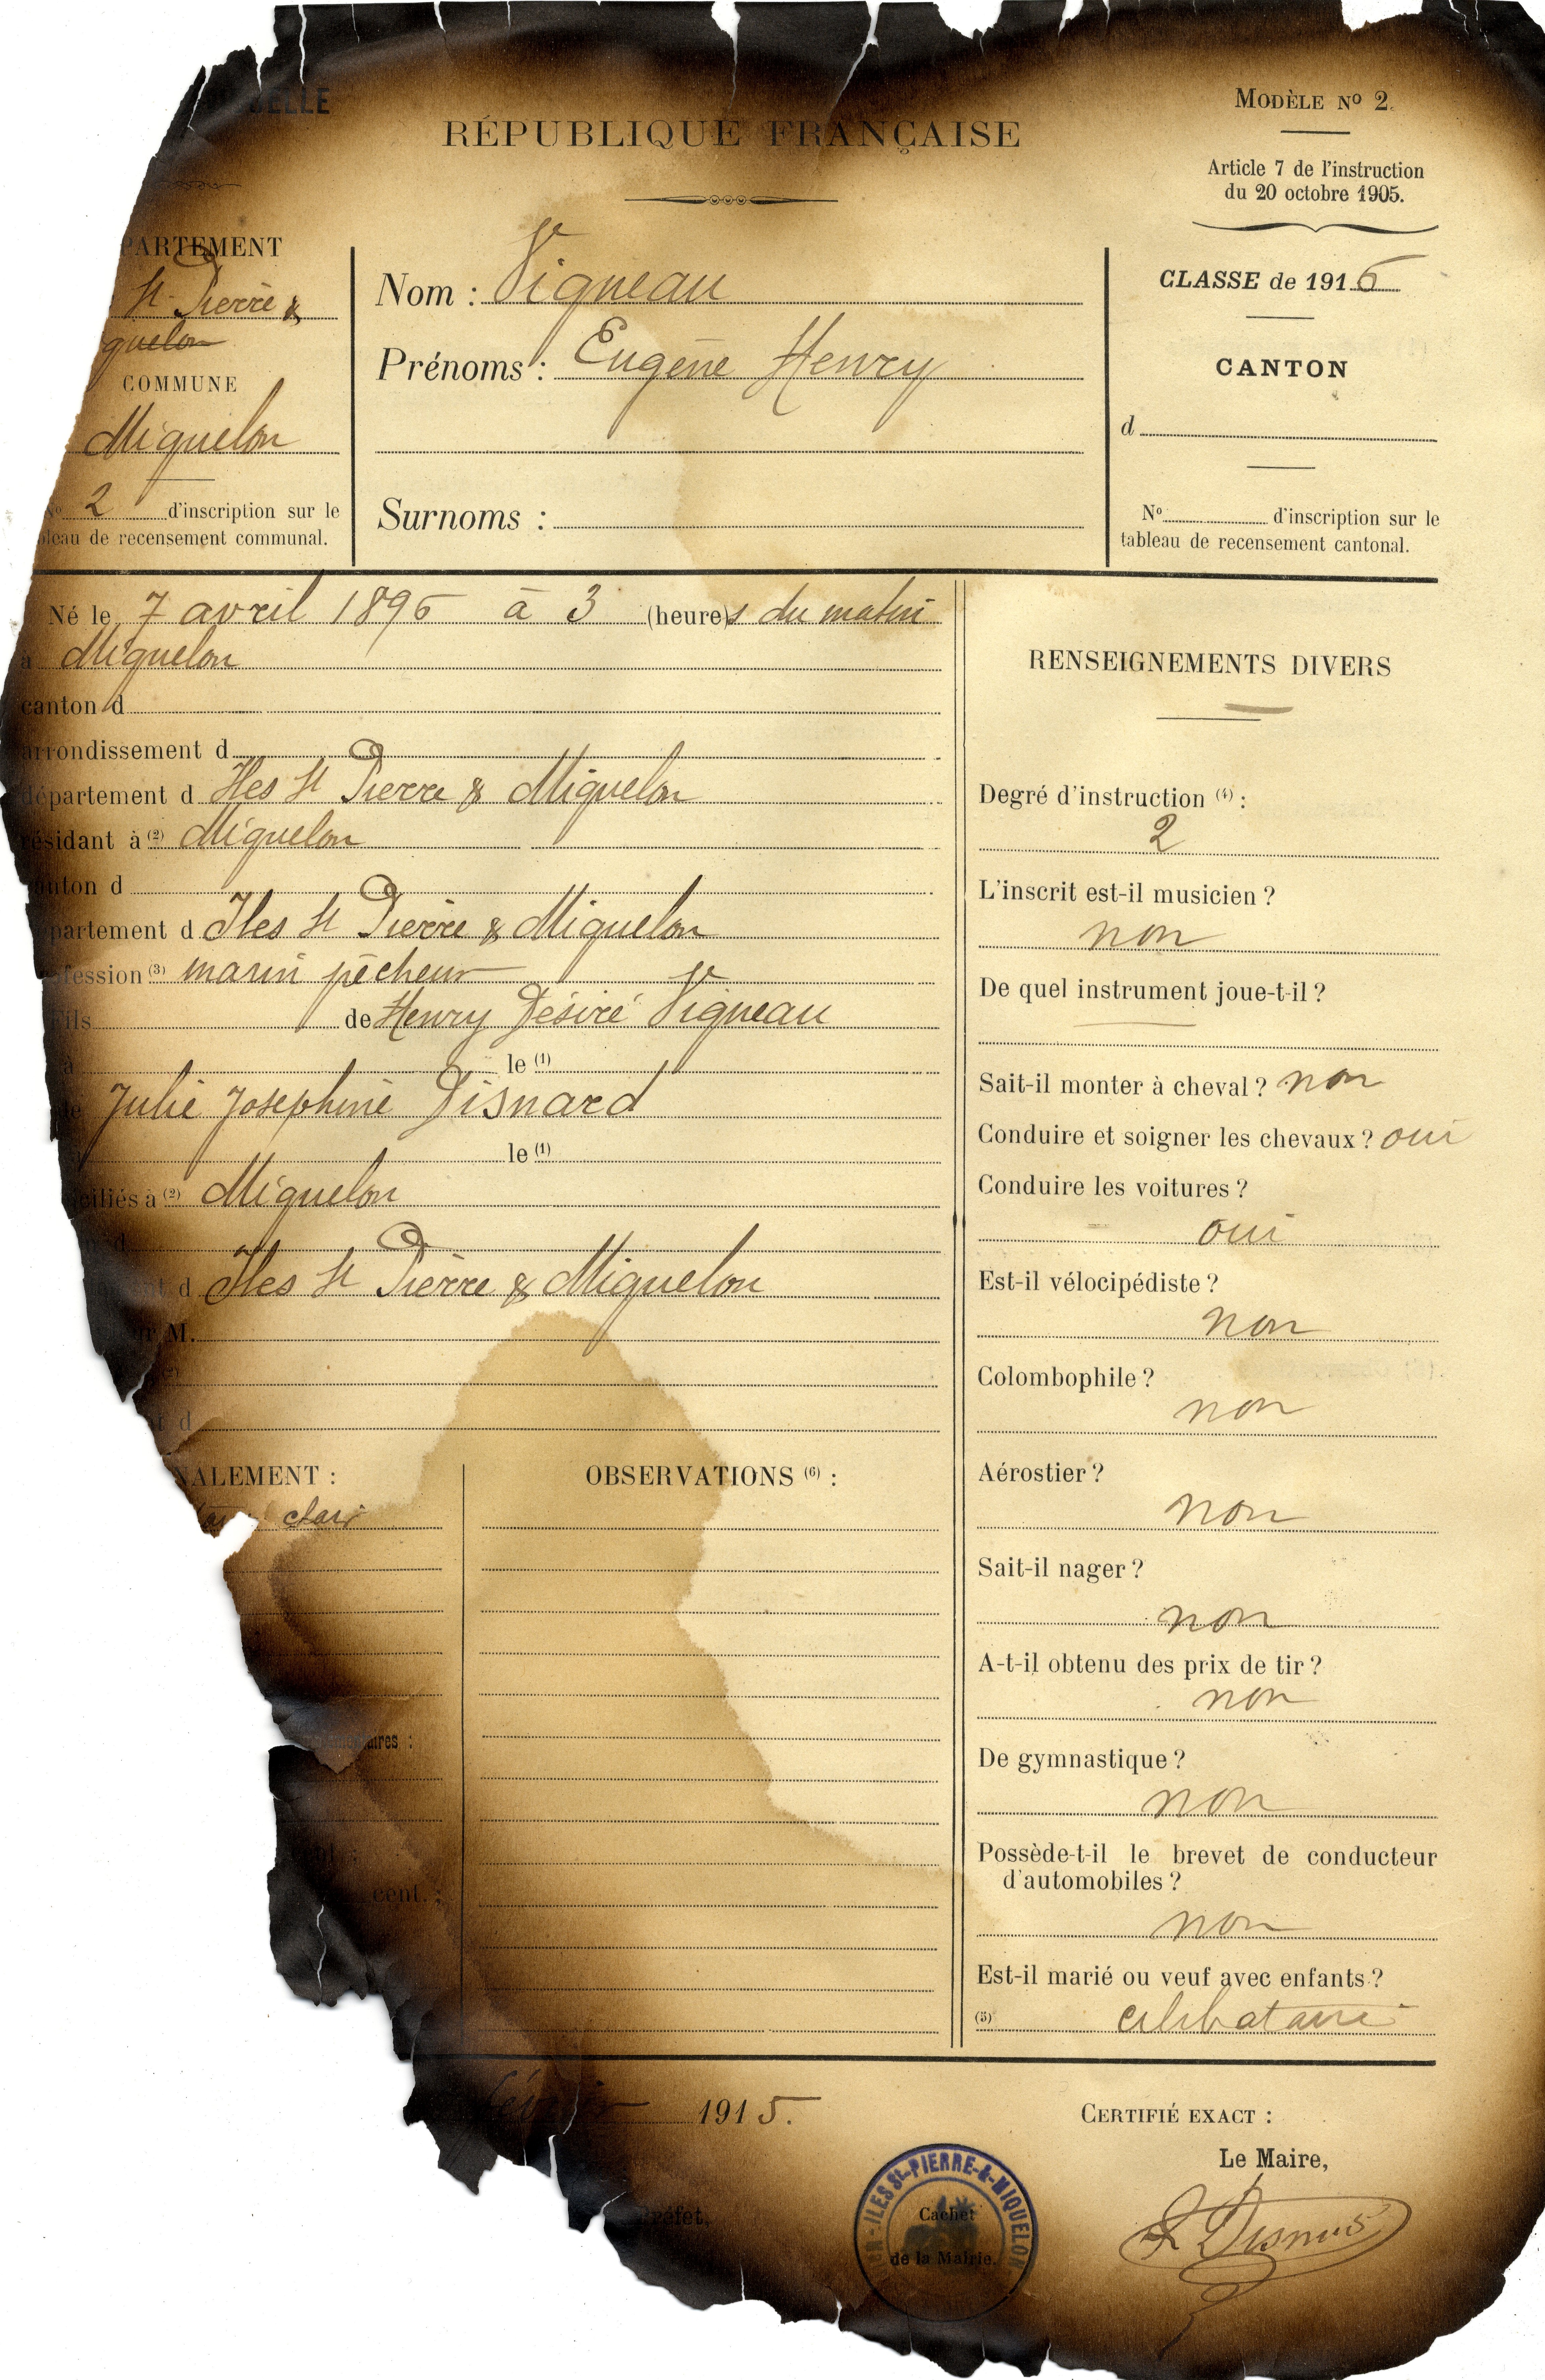 ELLE
RÉPUBLIQUE FRANÇAISE
MODÈLE Nº 2.
Article 7 de l'instruction
du 20 octobre 1905.
PARTEMENT
St Pierre &
quelon
COMMUNE
Miquelon
Nº 2 d'inscription sur le
bleau de recensement communal.
Nom : Vigneau
Prénoms : Eugène Henry
Surnoms :
CLASSE de 1916
CANTON
d
Nº d'inscription sur le
tableau de recensement cantonal.
Né le 7 avril 1896 à 3 (heures du matin
à Miquelon
canton d
arrondissement d
département d Iles St Pierre & Miquelon
résidant à (2) Miquelon
canton d
partement d Iles St Pierre & Miquelon
fession (3) marin pêcheur
Fils de Henry Désiré Vigneau
à le (1)
de Julie Josephine Disnard
le (1)
ciliés à (2) Miquelon
d
nt d Iles St Pierre & Miquelon
M.
(2)
t d
NALEMENT :
clair
aires :
cent. :
OBSERVATIONS (6) :
RENSEIGNEMENTS DIVERS
Degré d'instruction (4) :
2
L'inscrit est-il musicien ?
non
De quel instrument joue-t-il ?
Sait-il monter à cheval ? non
Conduire et soigner les chevaux ? oui
Conduire les voitures ?
oui
Est-il vélocipédiste ?
non
Colombophile ?
non
Aérostier ?
non
Sait-il nager ?
non
A-t-il obtenu des prix de tir ?
non
De gymnastique ?
non
Possède-t-il le brevet de conducteur
d'automobiles ?
non
Est-il marié ou veuf avec enfants ?
(5) célibataire
février 1915.
CERTIFIÉ EXACT :
Le Maire,
réfet.
ILES ST-PIERRE-&-MIQUELON
Cachet
de la Mairie.